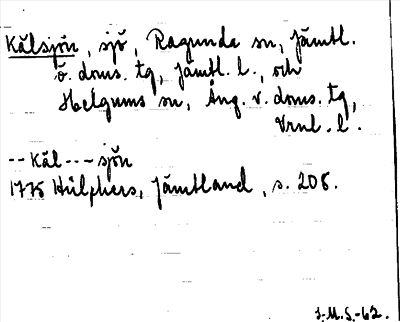 Kälsjön, sjö, Ragunda sn, Jämtl.
ö. doms. tg, Jämtl. l., och
Helgums sn, Ång. v. doms. tg,
Vrnl. l.
-- Käl --- sjön
1775 Hülphers, Jämtland, s. 208.
J.M.S.-62.